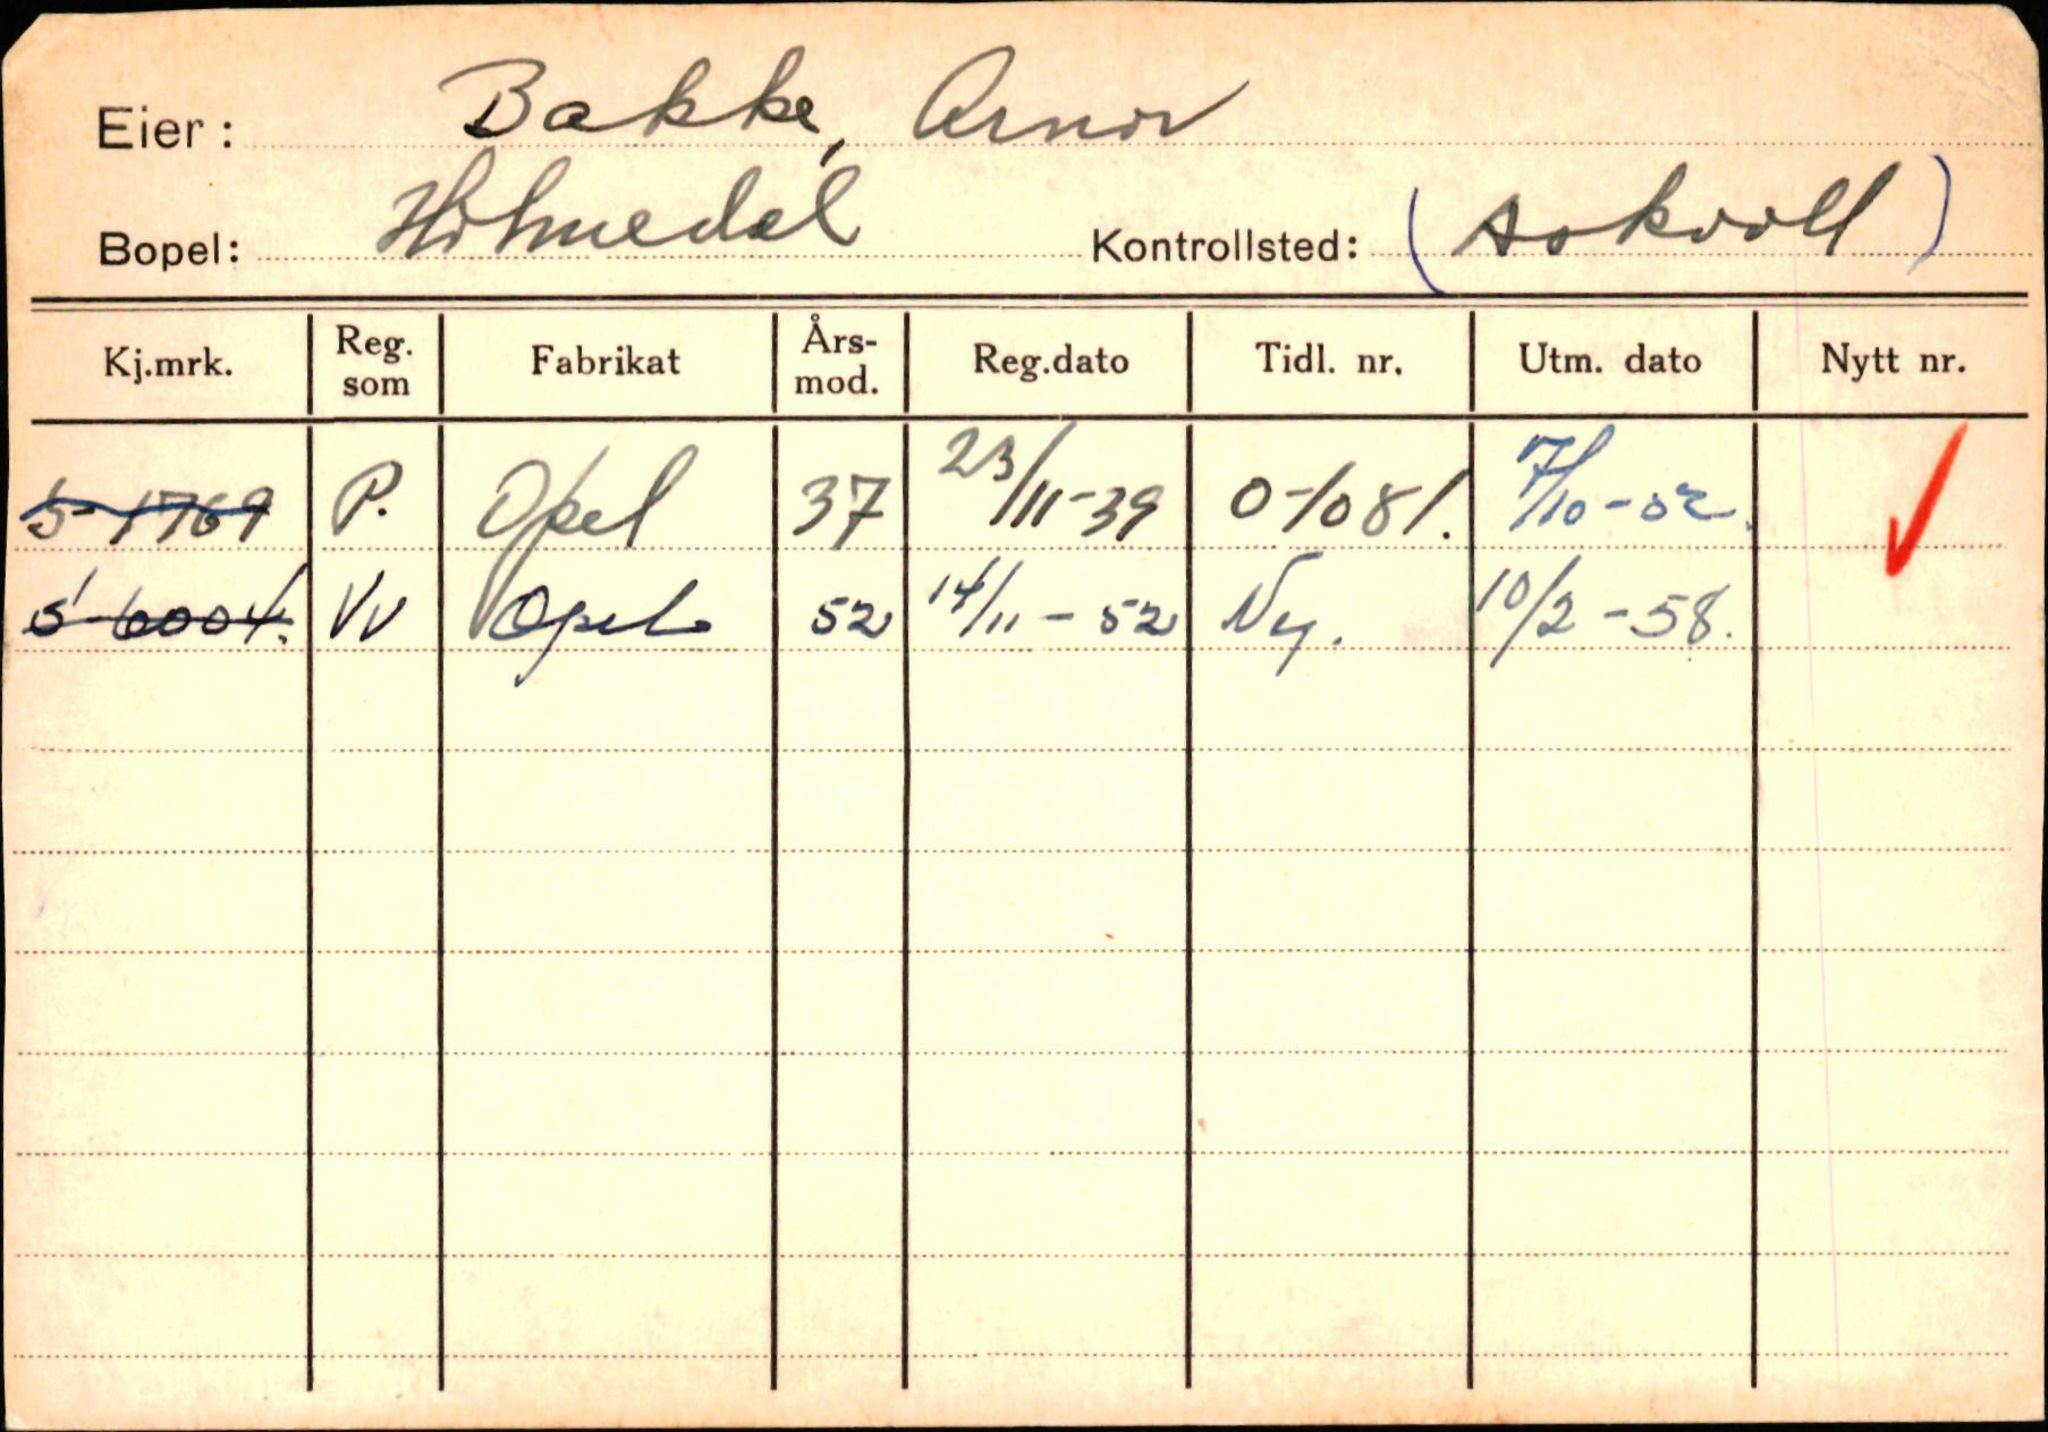 Eier: Bakke, Arnor
Bopel: Holmedal Kontrollsted: (Askvoll)
Kj.mrk. Reg. som Fabrikat Års-mod. Reg.dato Tidl. nr. Utm. dato Nytt nr.
S-1769 P. Opel 37 23/11-39 O-1081. 7/10-52.
S-6004. Vv Opel 52 14/11-52 Ny. 10/2-58.